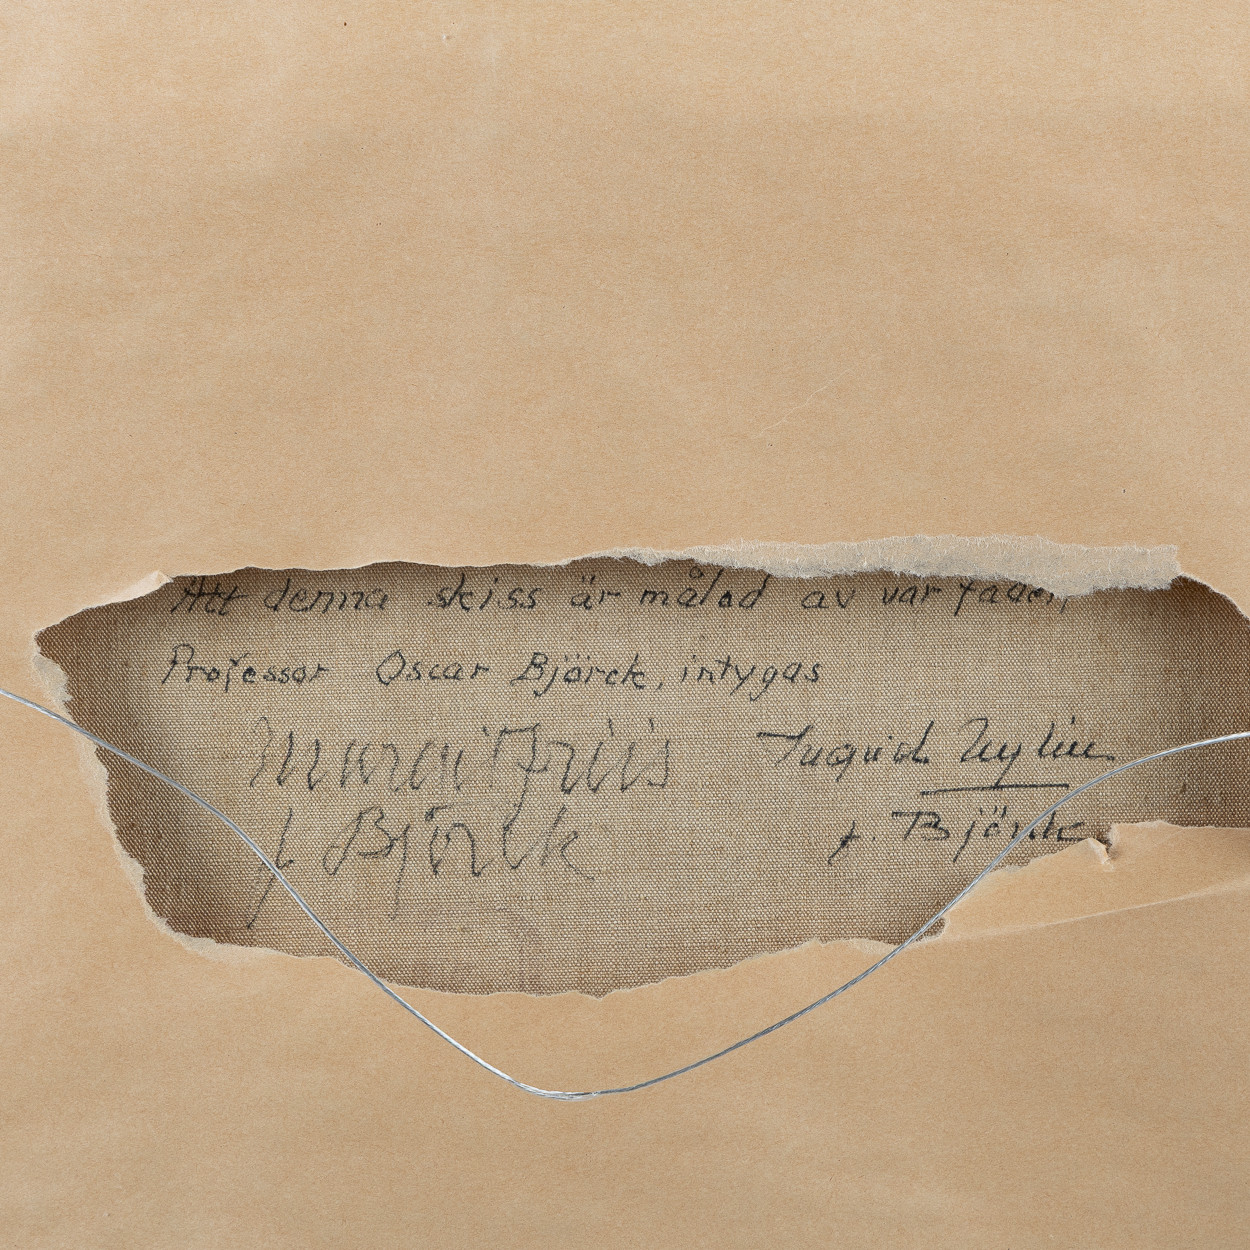 Att denna skiss är målad av vår fader,
Professor Oscar Björck, intygas
Margit Friis Ingrid Nylin
f Björck f. Björck